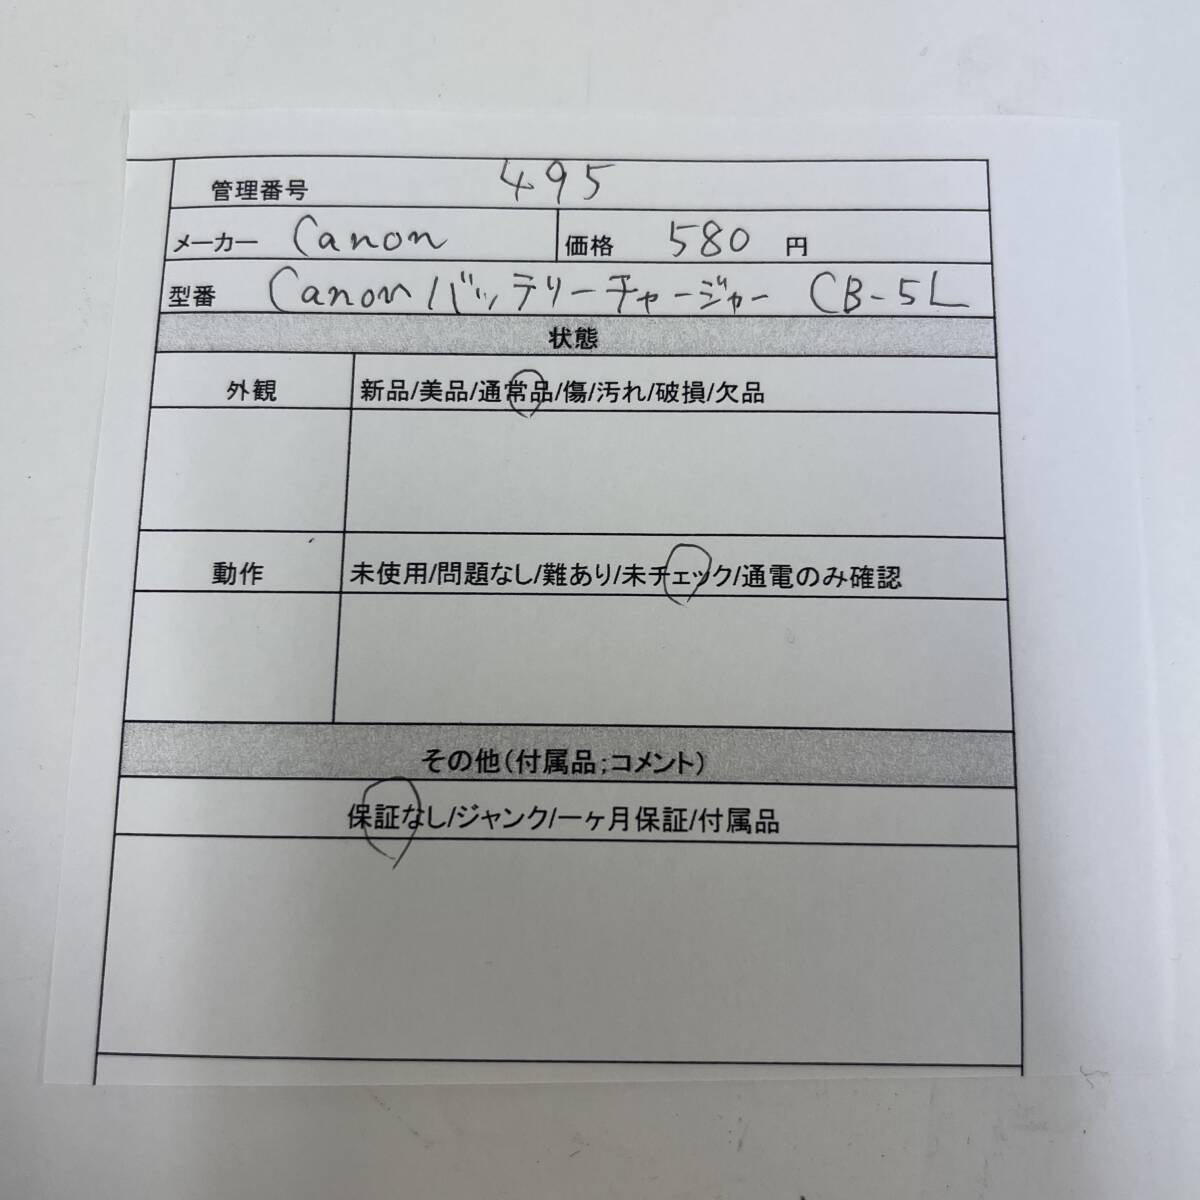 管理番号 495
メーカー Canon 価格 580 円
型番 Canonバッテリーチャージャー CB-5L
状態
外観 新品/美品/通常品/傷/汚れ/破損/欠品
動作 未使用/問題なし/難あり/未チェック/通電のみ確認
その他(付属品;コメント)
保証なし/ジャンク/一ヶ月保証/付属品